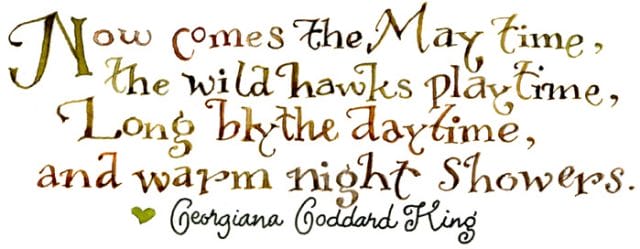 Now comes the May time,
the wild hawks play time,
Long blythe daytime,
and warm night showers.
Georgiana Goddard King